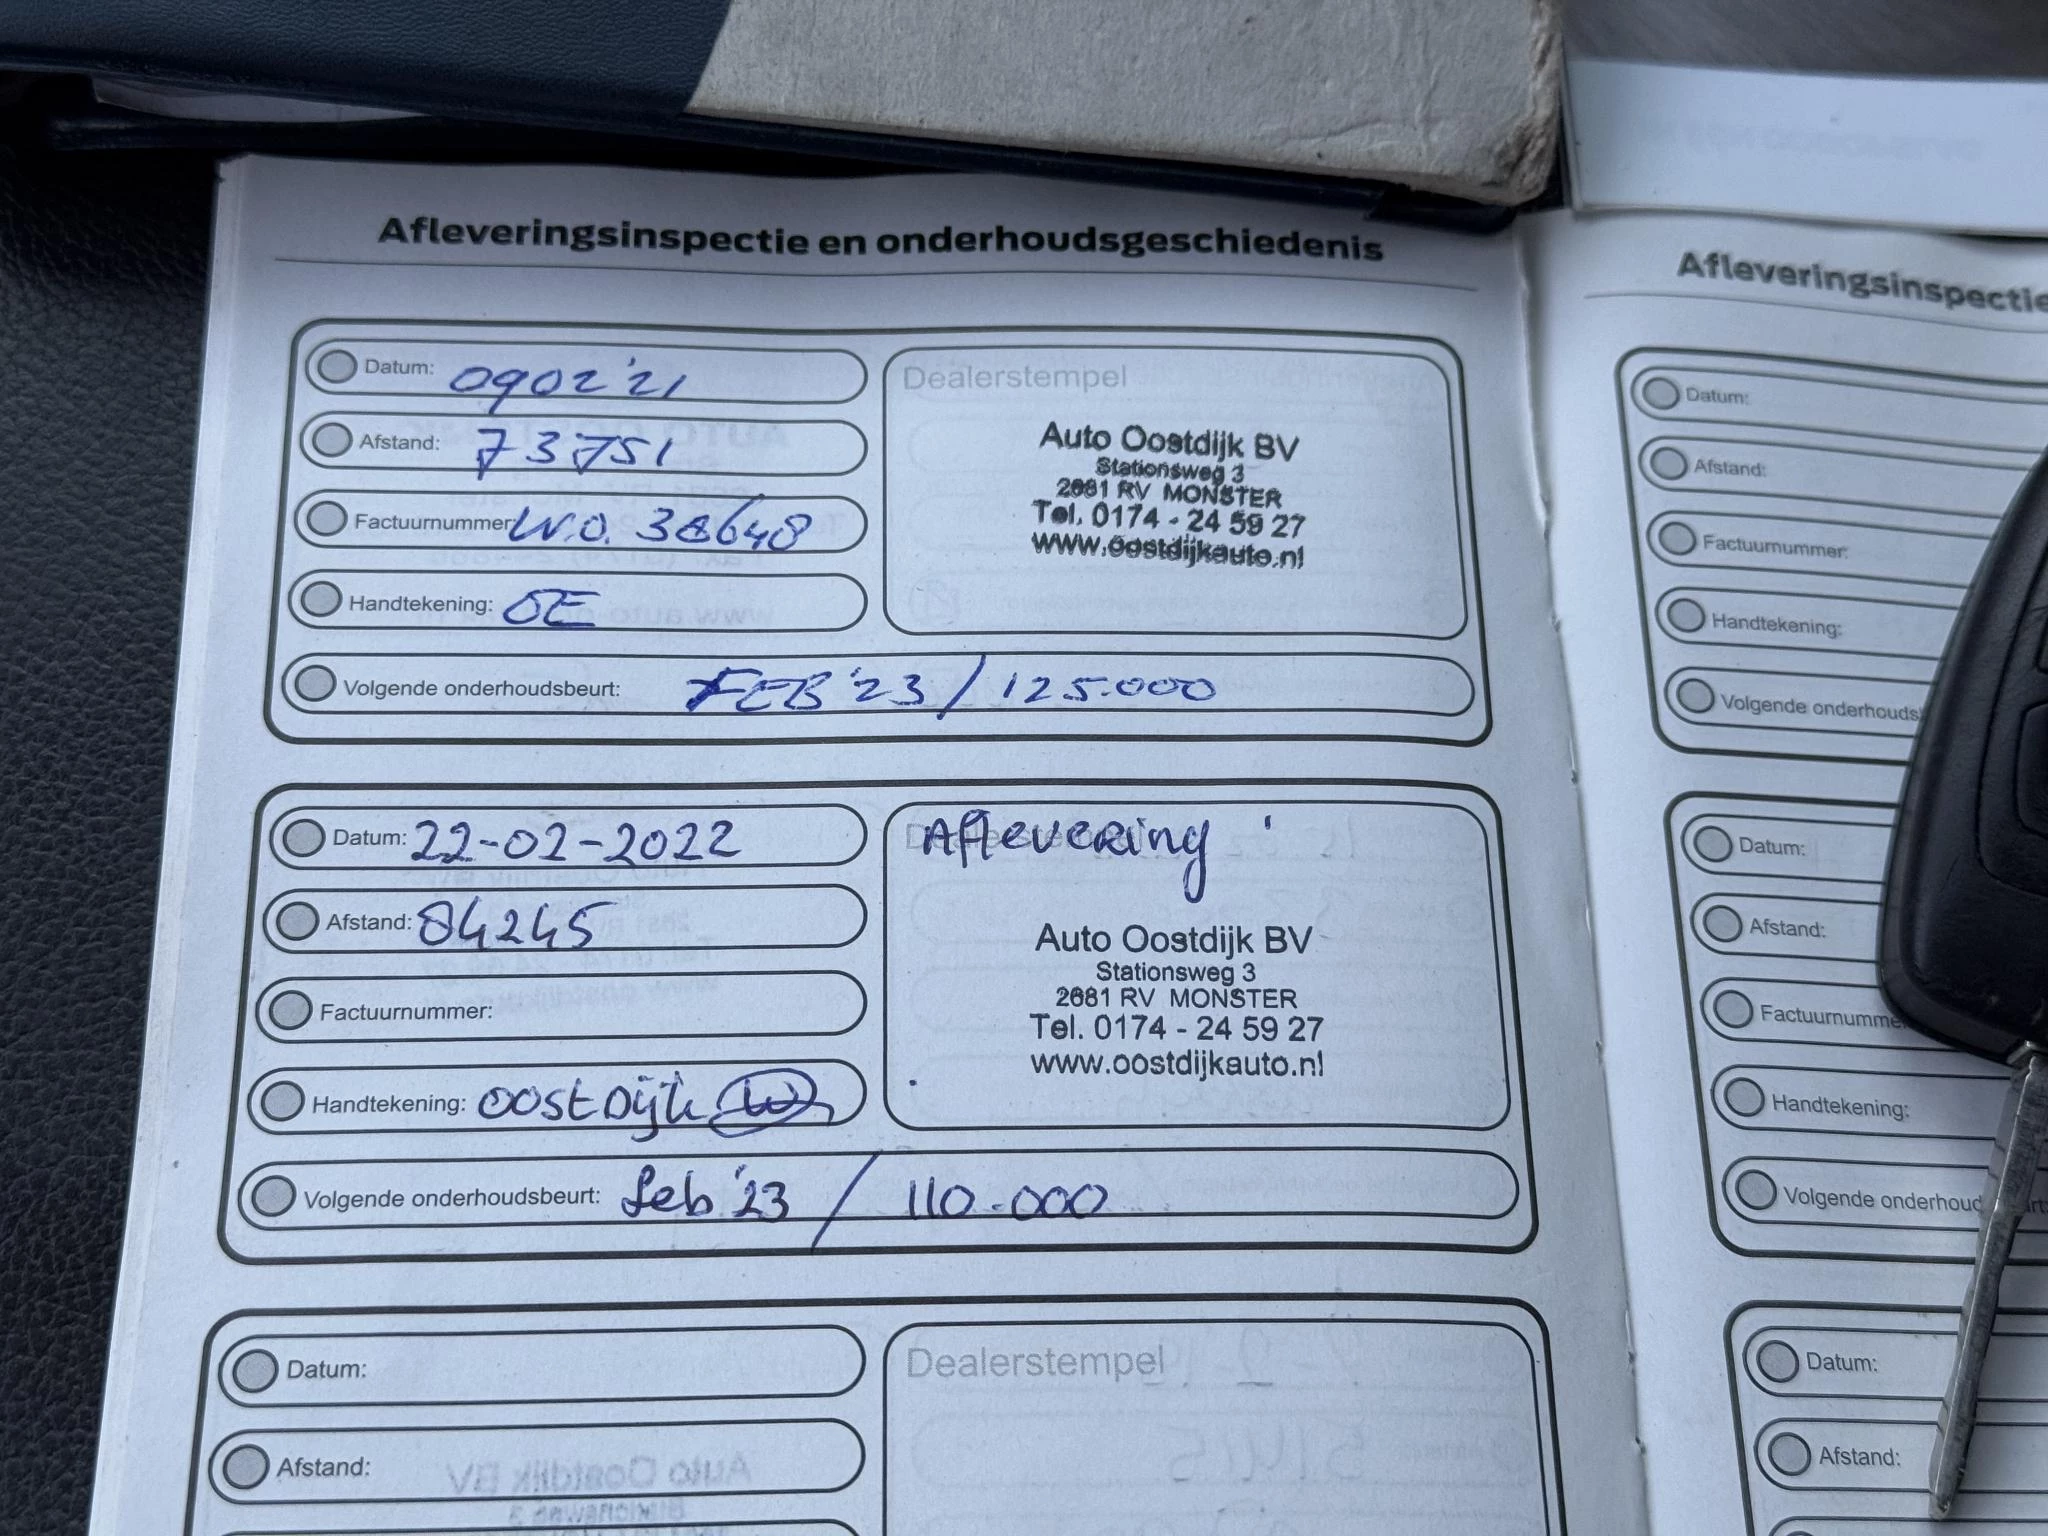 Afleveringsinspectie en onderhoudsgeschiedenis
Datum: 0902'21
Afstand: 73751
Factuurnummer: W.O. 38648
Handtekening: OE
Volgende onderhoudsbeurt: FEB '23 / 125.000
Dealerstempel
Auto Oostdijk BV
Stationsweg 3
2681 RV MONSTER
Tel. 0174 - 24 59 27
www.oostdijkauto.nl
Datum: 22-02-2022
Afstand: 84245
Factuurnummer:
Handtekening: Oostdijk
Volgende onderhoudsbeurt: feb '23 / 110.000
Dealerstempel
Aflevering
Auto Oostdijk BV
Stationsweg 3
2681 RV MONSTER
Tel. 0174 - 24 59 27
www.oostdijkauto.nl
Datum:
Afstand:
Dealerstempel
Afleveringsinspectie
Datum:
Afstand:
Factuurnummer:
Handtekening:
Volgende onderhouds
Datum:
Afstand:
Factuurnumme
Handtekening:
Volgende onderhoud
Datum:
Afstand: